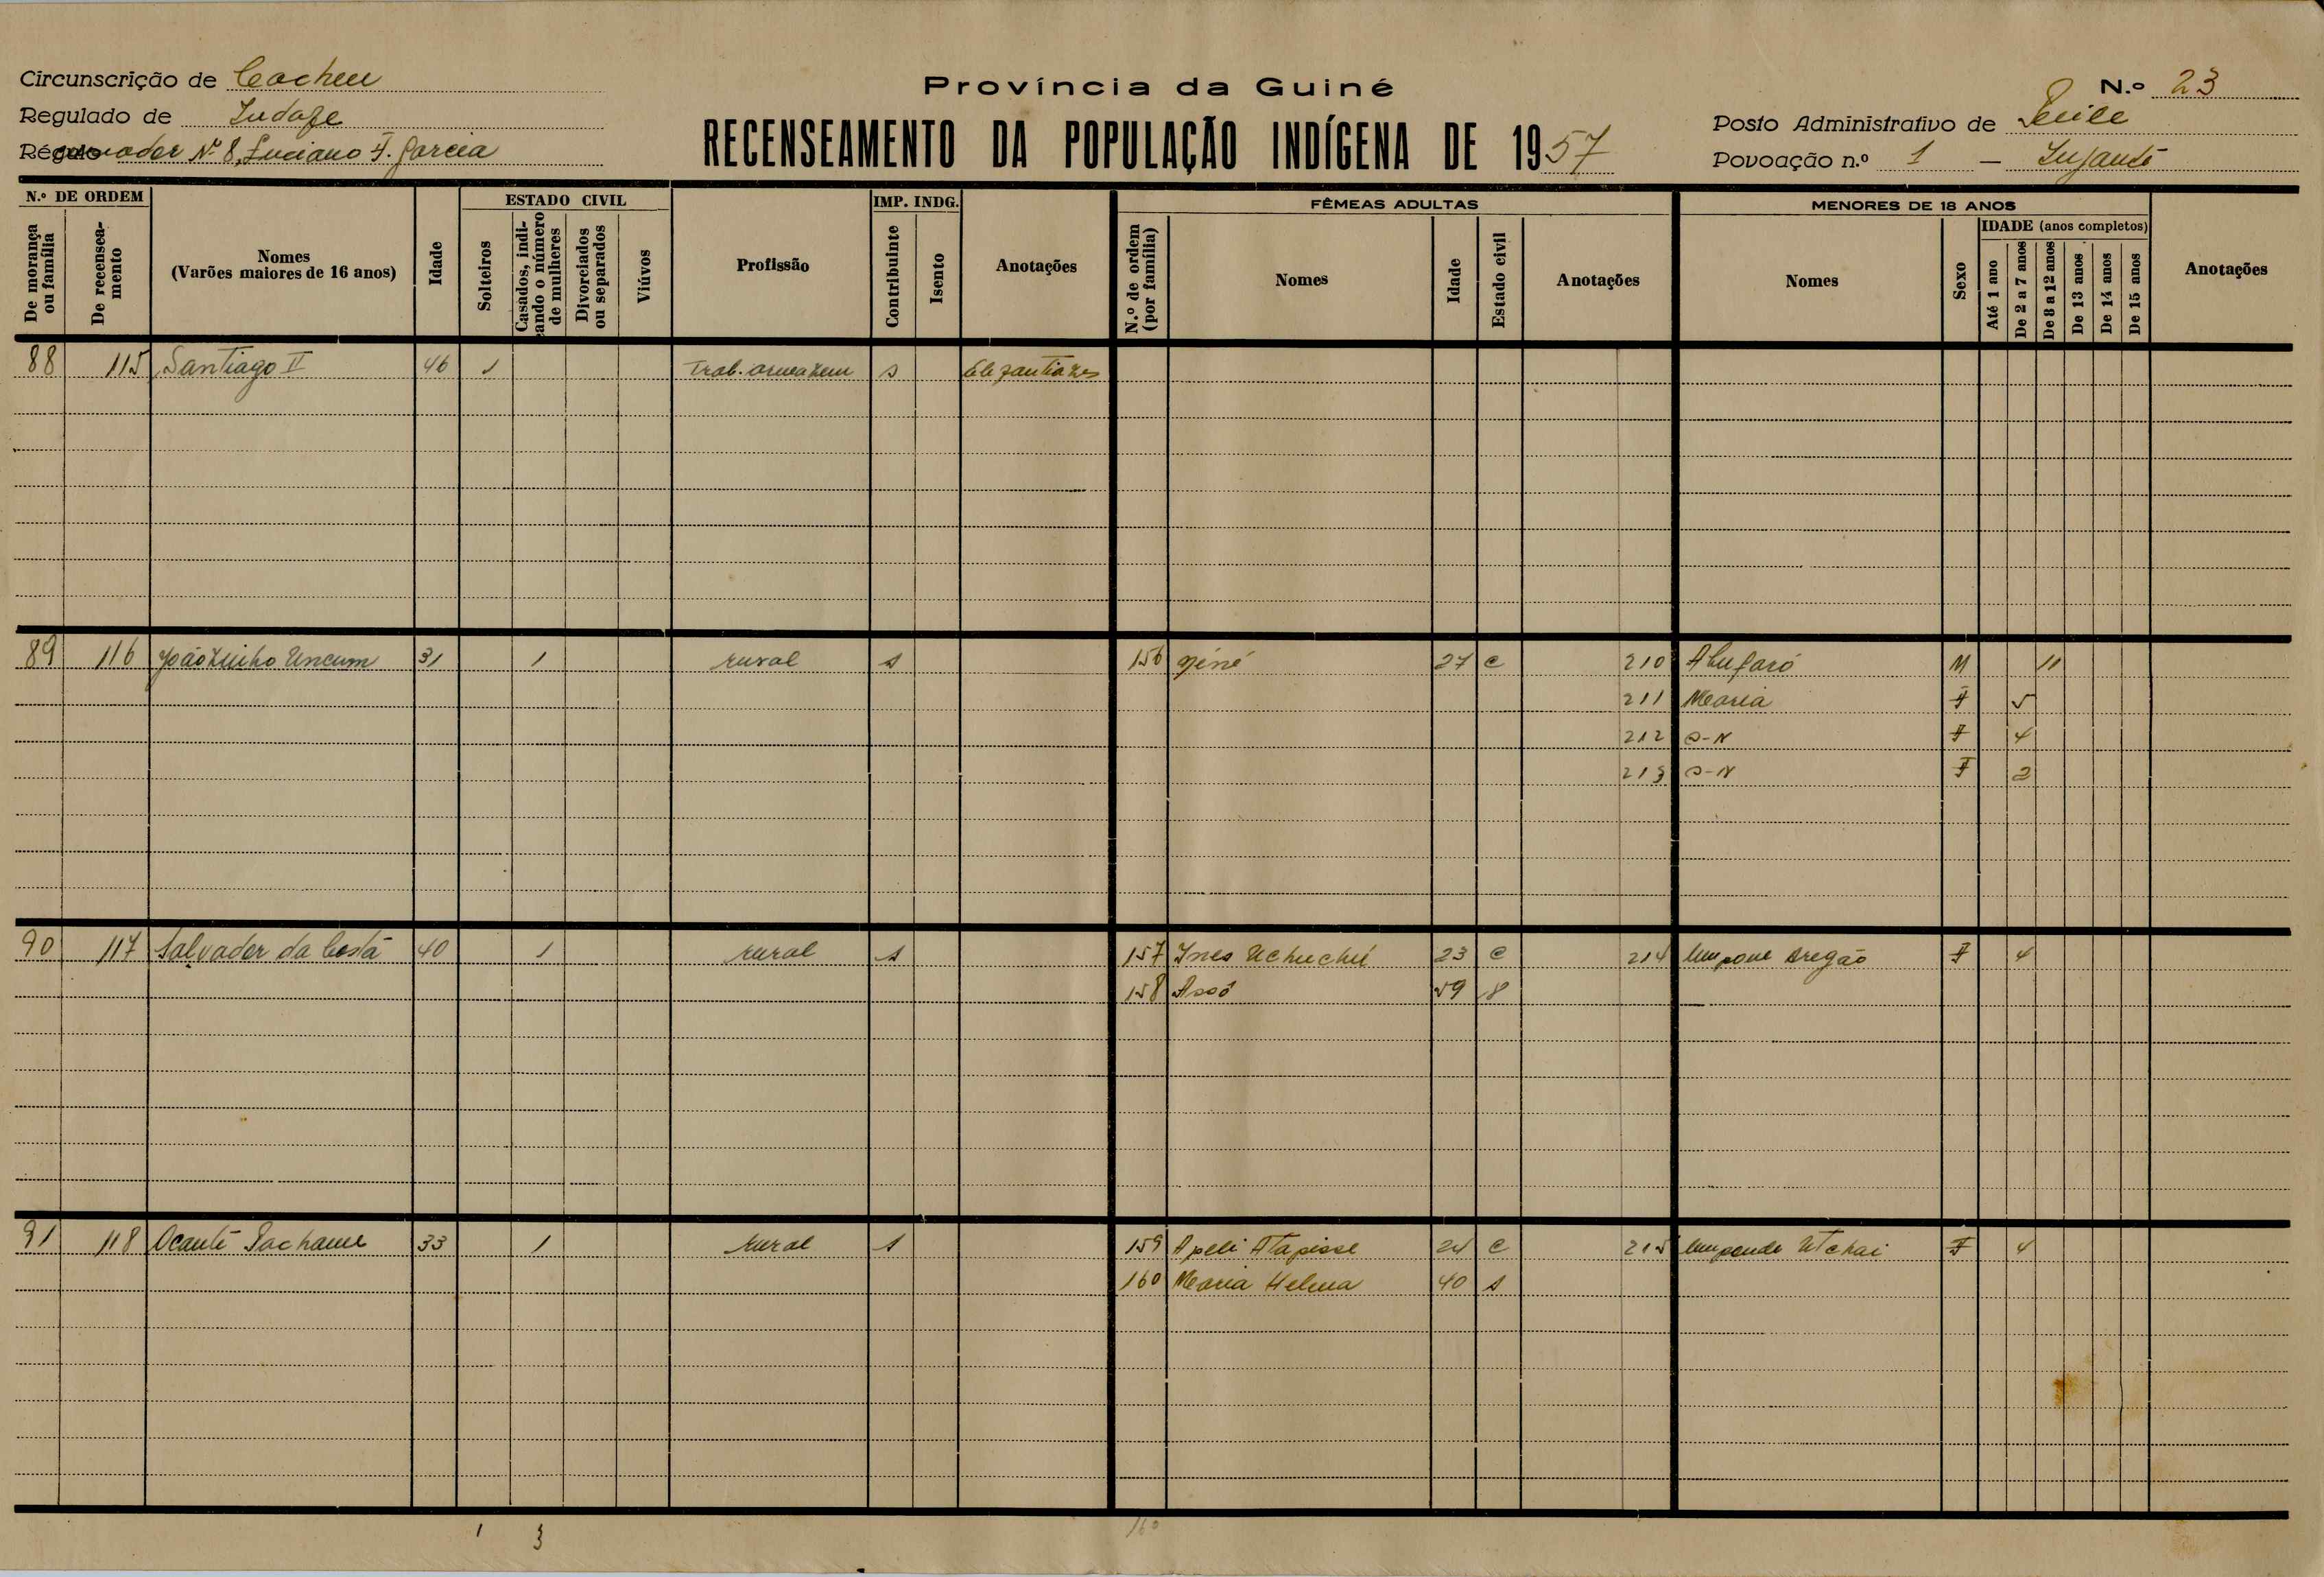 Circunscrição de Cacheu
Província da Guiné
N.º 23
Regulado de
Posto Administrativo de
Régulo N.º 8, Luciano F. Garcia
RECENSEAMENTO DA POPULAÇÃO INDÍGENA DE 1957
Povoação n.º 1 —
N.º DE ORDEM
De morança ou família
De recensea-mento
Nomes
(Varões maiores de 16 anos)
Idade
ESTADO CIVIL
Solteiros
Casados, indi-cando o número de mulheres
Divorciados ou separados
Viúvos
Profissão
IMP. INDG.
Contribuinte
Isento
Anotações
FÊMEAS ADULTAS
N.º de ordem (por família)
Nomes
Idade
Estado civil
Anotações
MENORES DE 18 ANOS
Nomes
Sexo
IDADE (anos completos)
Até 1 ano
De 2 a 7 anos
De 8 a 12 anos
De 13 anos
De 14 anos
De 15 anos
Anotações
88 115 Santiago II 46 1 Trab. armazem s
89 116 Joãozinho Uncum 31 1 rural s 156 27 c 210 M 11
211 Maria F 5
212 S-N F 4
213 S-N F 2
90 117 Salvador da Costa 40 1 rural s 157 Ines Uchuchú 23 c 214 F 4
158 Assó 59
91 118 Ocanté 33 1 rural s 159 Apeli Atapisse 24 c 215 F 4
160 Maria Helena 40 s
1 3 160